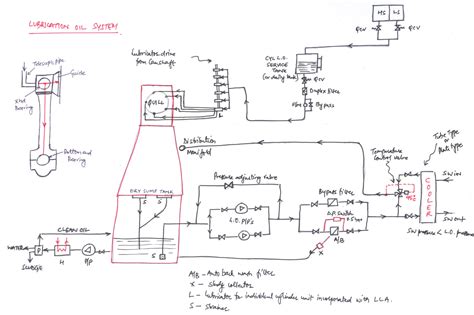 LUBRICATION OIL SYSTEM
Telescopic pipe
Guide
Xhd
Bearing
Bottom end
Bearing
Lubricator drive
from Camshaft
QUILL
L
CYL L.O.
SERVICE
TANK
(or daily tank)
HS
LS
QCV
QCV
QCV
Duplex filter
Bypass
Distribution
Manifold
Temperature
Control valve
Tube Type
or
Plate type
COOLER
SW in
SW out
SW pressure < L.O. pressure
DRY SUMP TANK
S
S
S
Pressure adjusting valve
L.O. P/P's
Bypass filter
A/B
X
CLEAN OIL
WATER
SLUDGE
H
P/P
A/B - Auto back wash filter
X - Sludge collector
L - Lubricator to individual cylinder unit incorporated with L.C.A.
S - Strainer